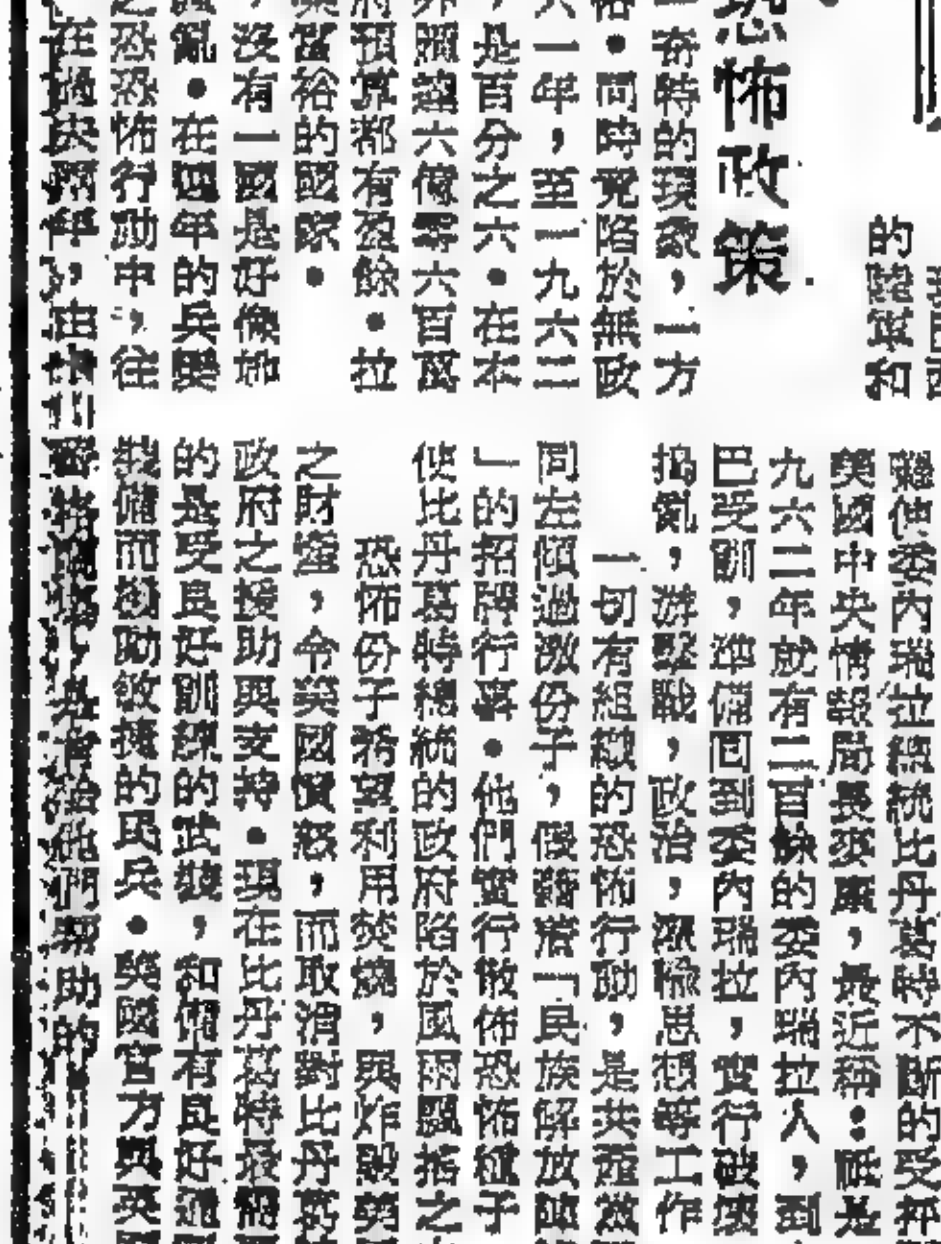 恐怖政策
的陸軍和
一奇特的現象，一方
俗．同時竟陷於無政
六一年，至一九六二
，是百分之六．在本
外滙達六億零六百萬
府預算都有盈餘．拉
富裕的國家．
，沒有一國是好像地
亂．在四年的兵變
之恐怖行動中，往
在過去兩年，由
難使委內瑞拉總統比丹葛時不斷的受
美國中央情報局長麥康，最近稱：祗是
九六二年就有二百餘的委內瑞拉人，到
巴受訓，準備回到委內瑞拉，實行破壞
搗亂，游擊戰，政治，灌輸思想等工作
一切有組織的恐怖行動，是共產黨
同左傾過激份子，假藉着「民族解放陣
」的招牌行事．他們實行散佈恐怖種子
使比丹葛時總統的政府陷於風雨飄搖之
恐怖份子希望利用焚燒，與炸毀美
之財產，令美國憤怒，而取消對比丹葛
政府之援助與支持．現在比丹葛時發
的是受良好訓練的武裝，和備有良好
裝備而機動敏捷的民兵．美國官方與英
他們幫助的